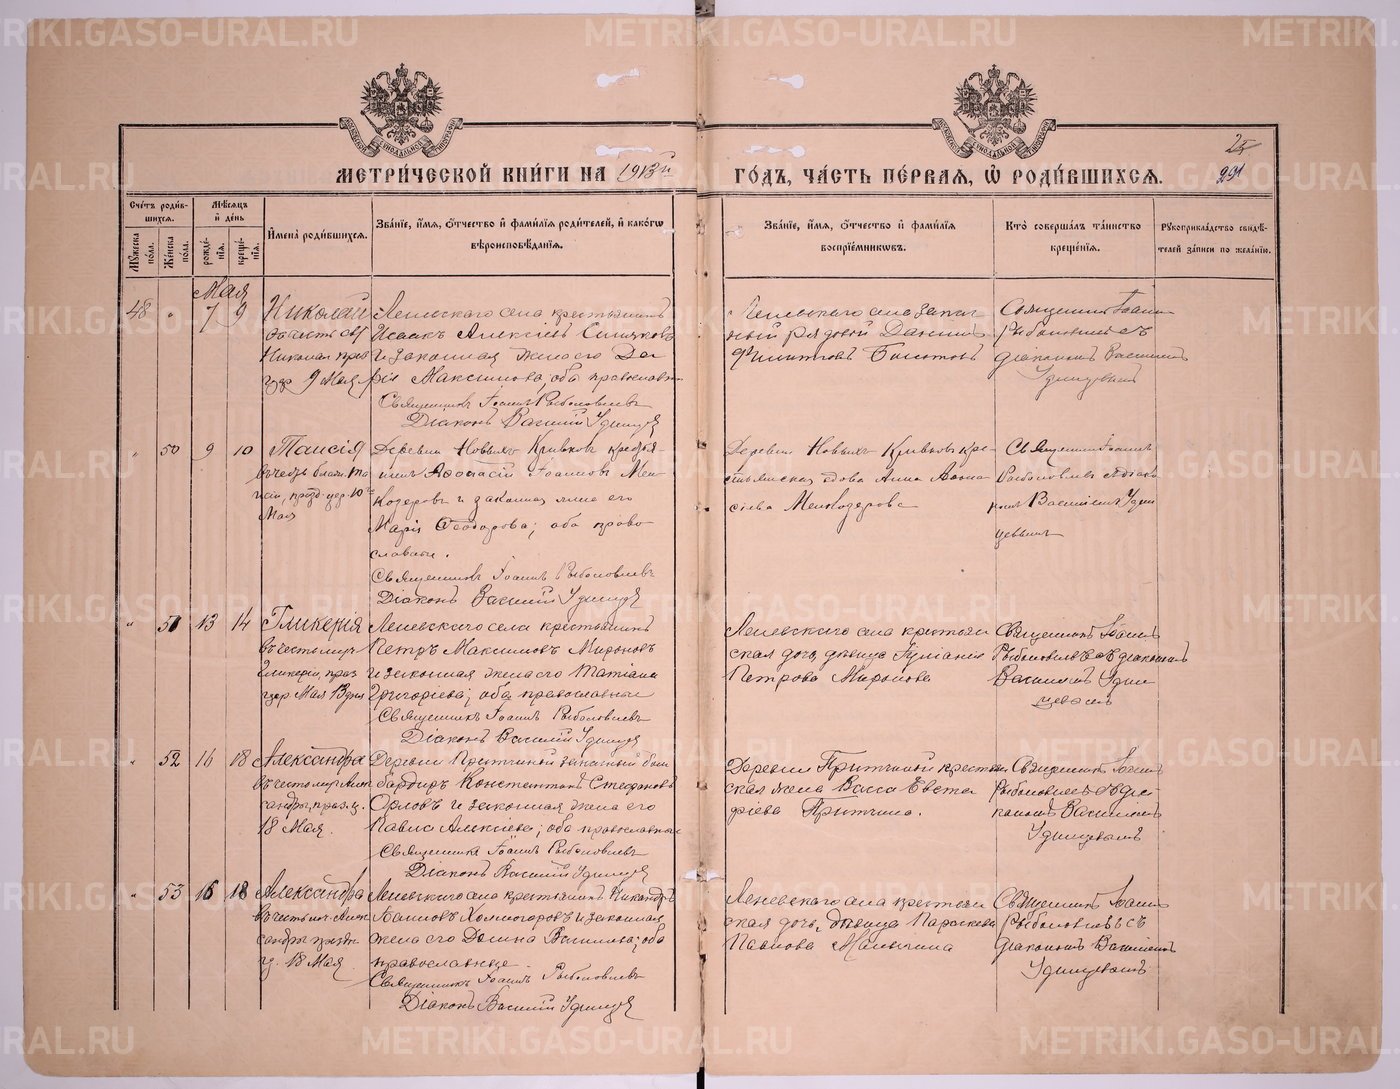 METRIKI.GASO-URAL.RU
МЕТРИ́ЧЕСКОЙ КНИ́ГИ НА 1913й ГО́ДЪ, ЧА́СТЬ ПЕ́РВАЯ, Ѡ РОДИ́ВШИХСЯ.
25
291
Сче́тъ роди́вшихся.
Му́жеска по́ла.
Же́нска по́ла.
Мѣ́сяцъ и де́нь
рожде́нія.
креще́нія.
И҆мена̀ роди́вшихся.
Зва́ніе, и҆́мя, ѻ҆́тчество и҆ фами́лія роди́телей, и҆ како́гѡ вѣроисповѣ́данія.
Зва́ніе, и҆́мя, ѻ҆́тчество и҆ фами́лія воспріе́мниковъ.
Кто̀ соверша́лъ та́инство креще́нія.
Рꙋкоприкла́дство свидѣ́телей за́писи по жела́нію.
Мая
48 " 7 9
Николай
въ честь свт
Николая праз
цер 9 Мая
Леневскаго села крестьянинъ
Исаакъ Алексіевъ
и законная жена его Да
рія Максимова, оба православн
Священникъ Іоаннъ Рыболовлевъ
Діаконъ Василій Удинцев
Леневскаго села запас
ный рядовой Даніилъ
Священник Іоанн
Рыболовлевъ съ
діакономъ Василіемъ
Удинцевымъ
" 50 9 10
Таисія
Мая
Деревни Новыхъ Кривковъ крестья
нинъ Аѳанасій Іоанновъ Мен
кодеровъ и законная жена его
Марія Ѳеодорова; оба право
славны.
Священникъ Іоаннъ Рыболовлевъ
Діаконъ Василій Удинцев
Деревни Новыхъ Кривковъ кре
стьянская вдова Анна
Менкодерова
Священникъ Іоаннъ
Рыболовлевъ
Василіемъ Удин
цевымъ
" 51 13 14
Гликерія
въ честь муч
Гликеріи, праз
цер Мая 13 дня
Леневскаго села крестьянинъ
Петръ Максимовъ Мироновъ
и законная жена его Татіана
Григоріева; оба православные
Священникъ Іоаннъ Рыболовлевъ
Діаконъ Василій Удинцев
Леневскаго села крестьян
ская дочь, дѣвица Іуліанія
Петрова Миронова
Священникъ Іоаннъ
Рыболовлевъ съ діакономъ
Василіемъ Удин
цевымъ
" 52 16 18
Александра
въ честь муч. Алек
сандры, празд. ц.
18 Мая.
Деревни Притчиной запасный бом
бардиръ Константинъ Стефановъ
Орловъ и законная жена его
Павла Алексіева; оба православные
Священникъ Іоаннъ Рыболовлевъ
Діаконъ Василій Удинцев
Деревни Притчиной крестьян
ская жена Васса Евста
фіева Притчина.
Священникъ Іоаннъ
Рыболовлевъ съ діа
кономъ Василіемъ
Удинцевымъ
" 53 16 18
Александра
въ честь муч. Алек
сандры праздн
ц. 18 Мая
Леневскаго села крестьянинъ Никандръ
Холмогоровъ и законная
жена его Домна Василіева; оба
православные.
Священникъ Іоаннъ Рыболовлевъ
Діаконъ Василій Удинцев
Леневскаго села крестьян
ская дочь, дѣвица Параскева
Павлова
Священникъ Іоанн
Рыболовлевъ съ
діакономъ Василіемъ
Удинцевымъ